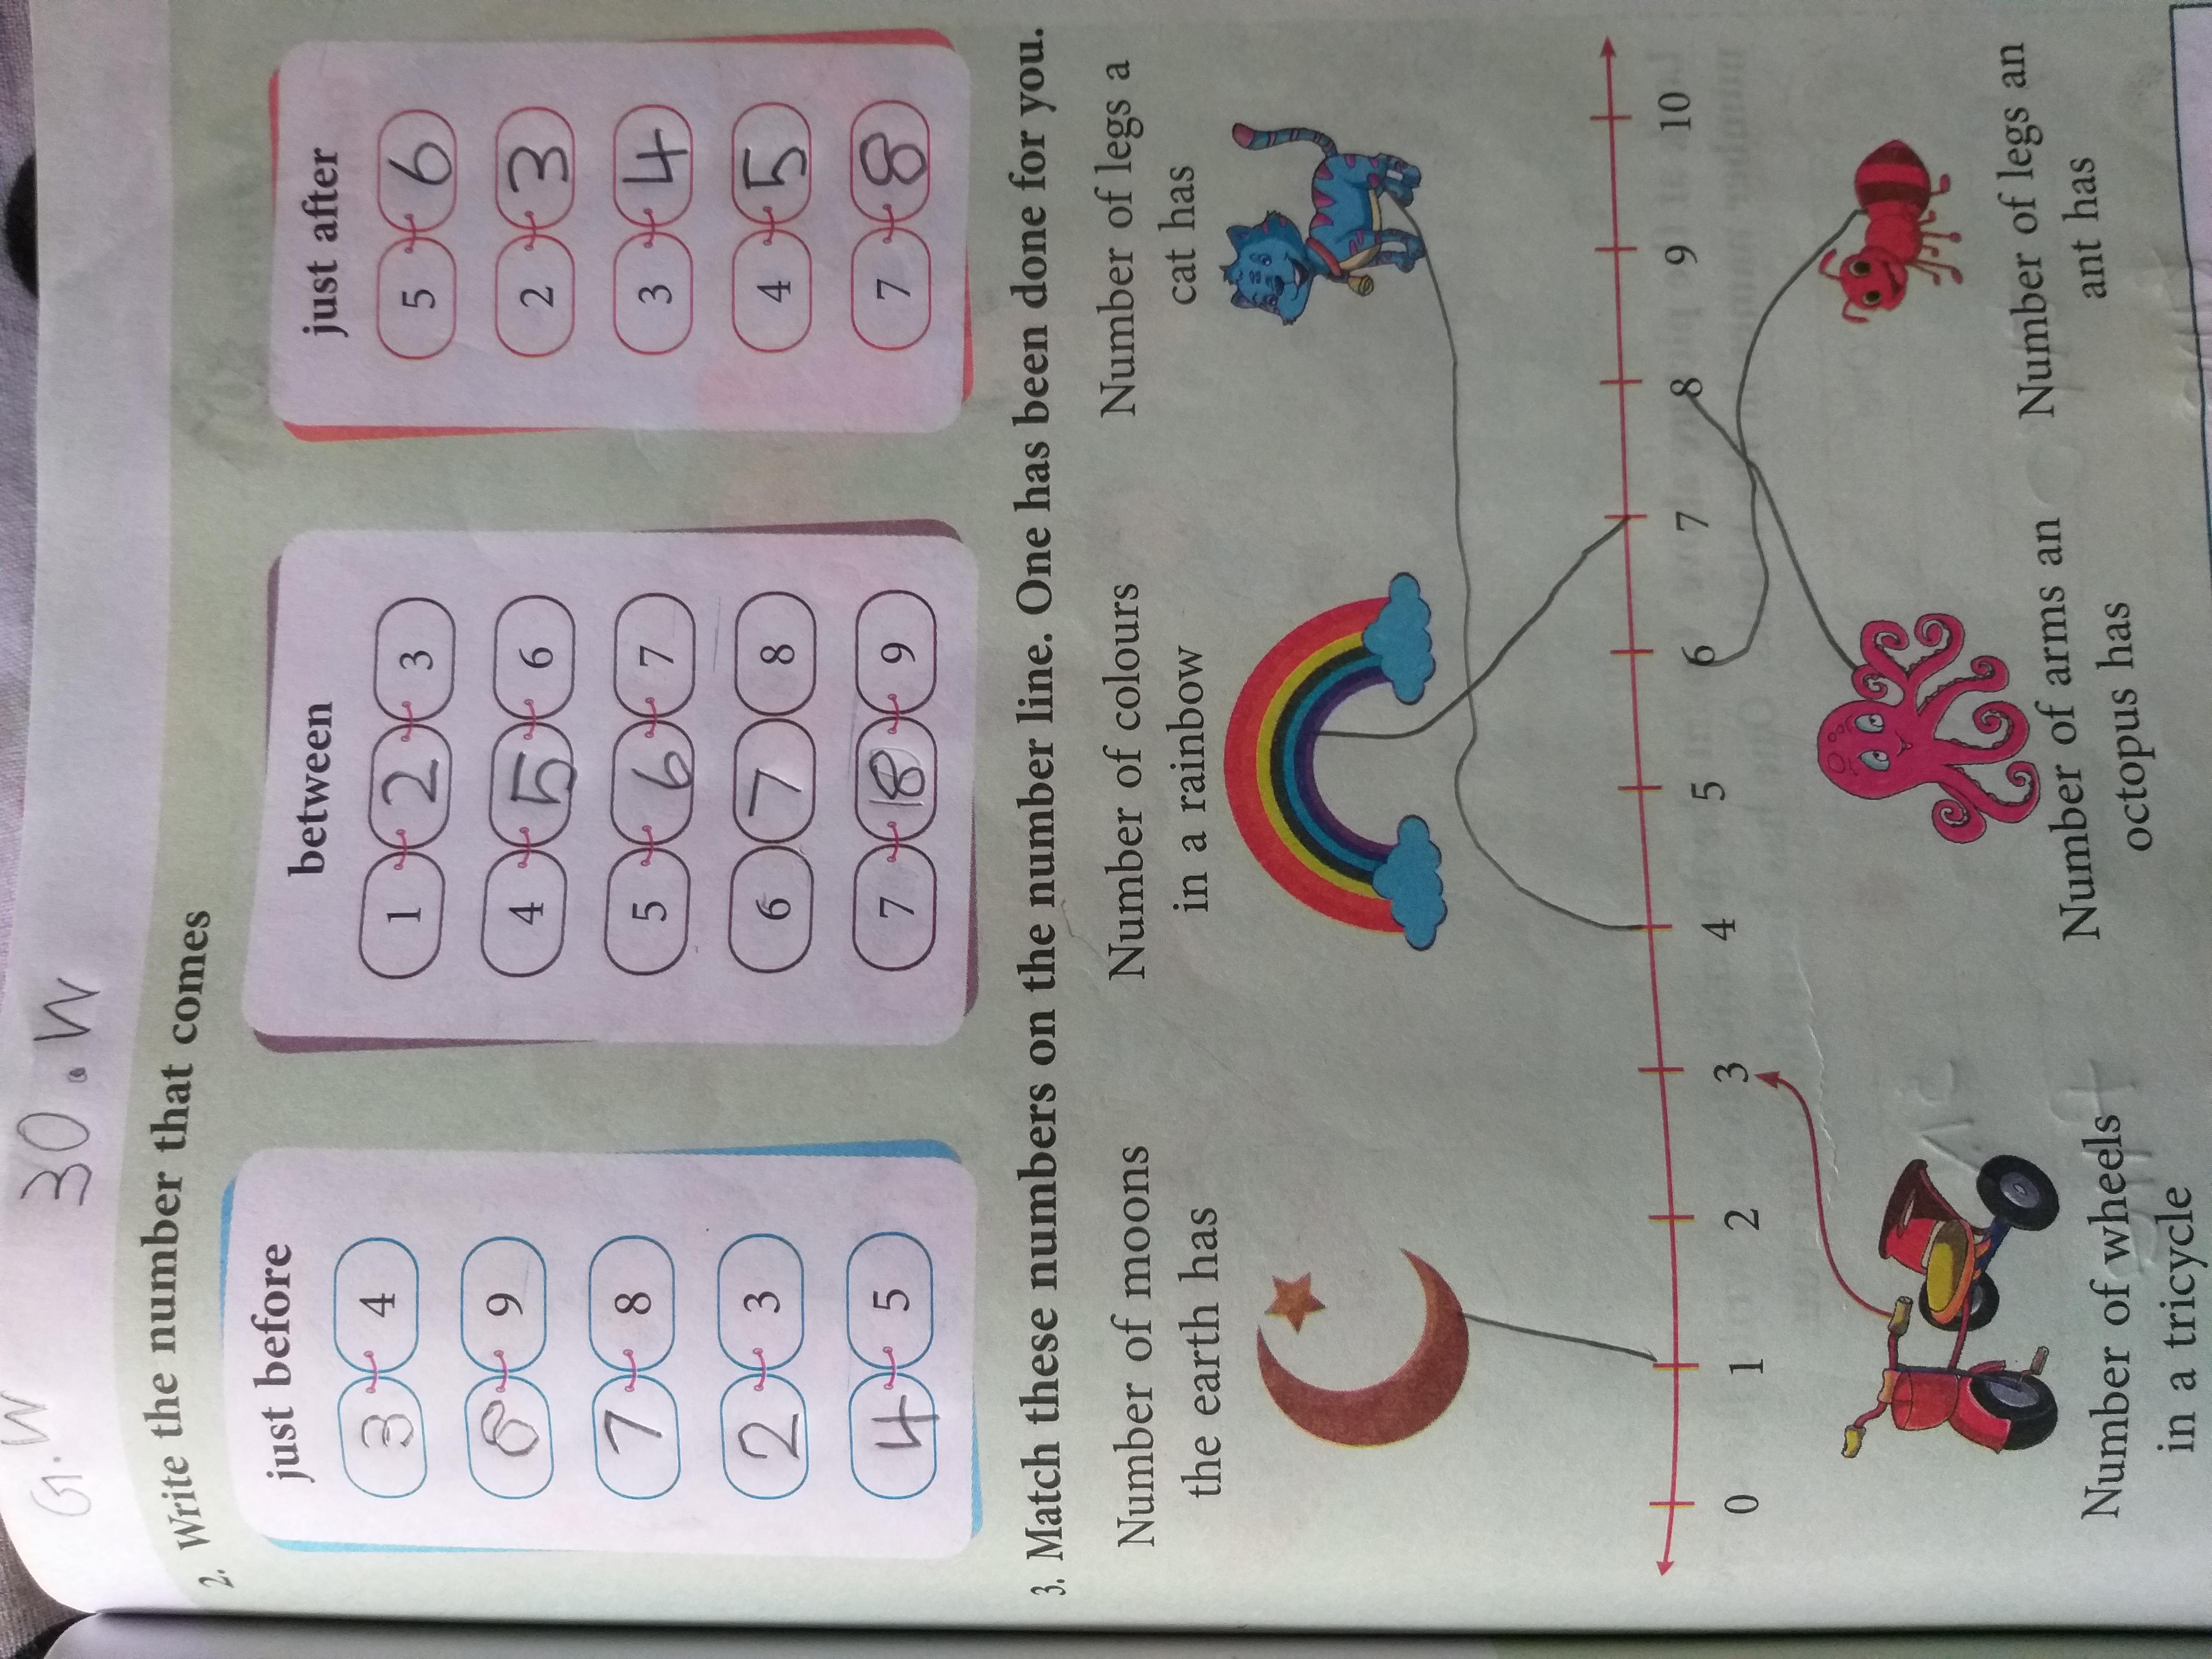 G.W 30.W
2. Write the number that comes
just before
3 4
8 9
7 8
2 3
4 5
between
1 2 3
4 5 6
5 6 7
6 7 8
7 18 9
just after
5 6
2 3
3 4
4 5
7 8
3. Match these numbers on the number line. One has been done for you.
Number of moons
the earth has
Number of colours
in a rainbow
Number of legs a
cat has
0 1 2 3 4 5 6 7 8 9 10
Number of wheels
in a tricycle
Number of arms an
octopus has
Number of legs an
ant has